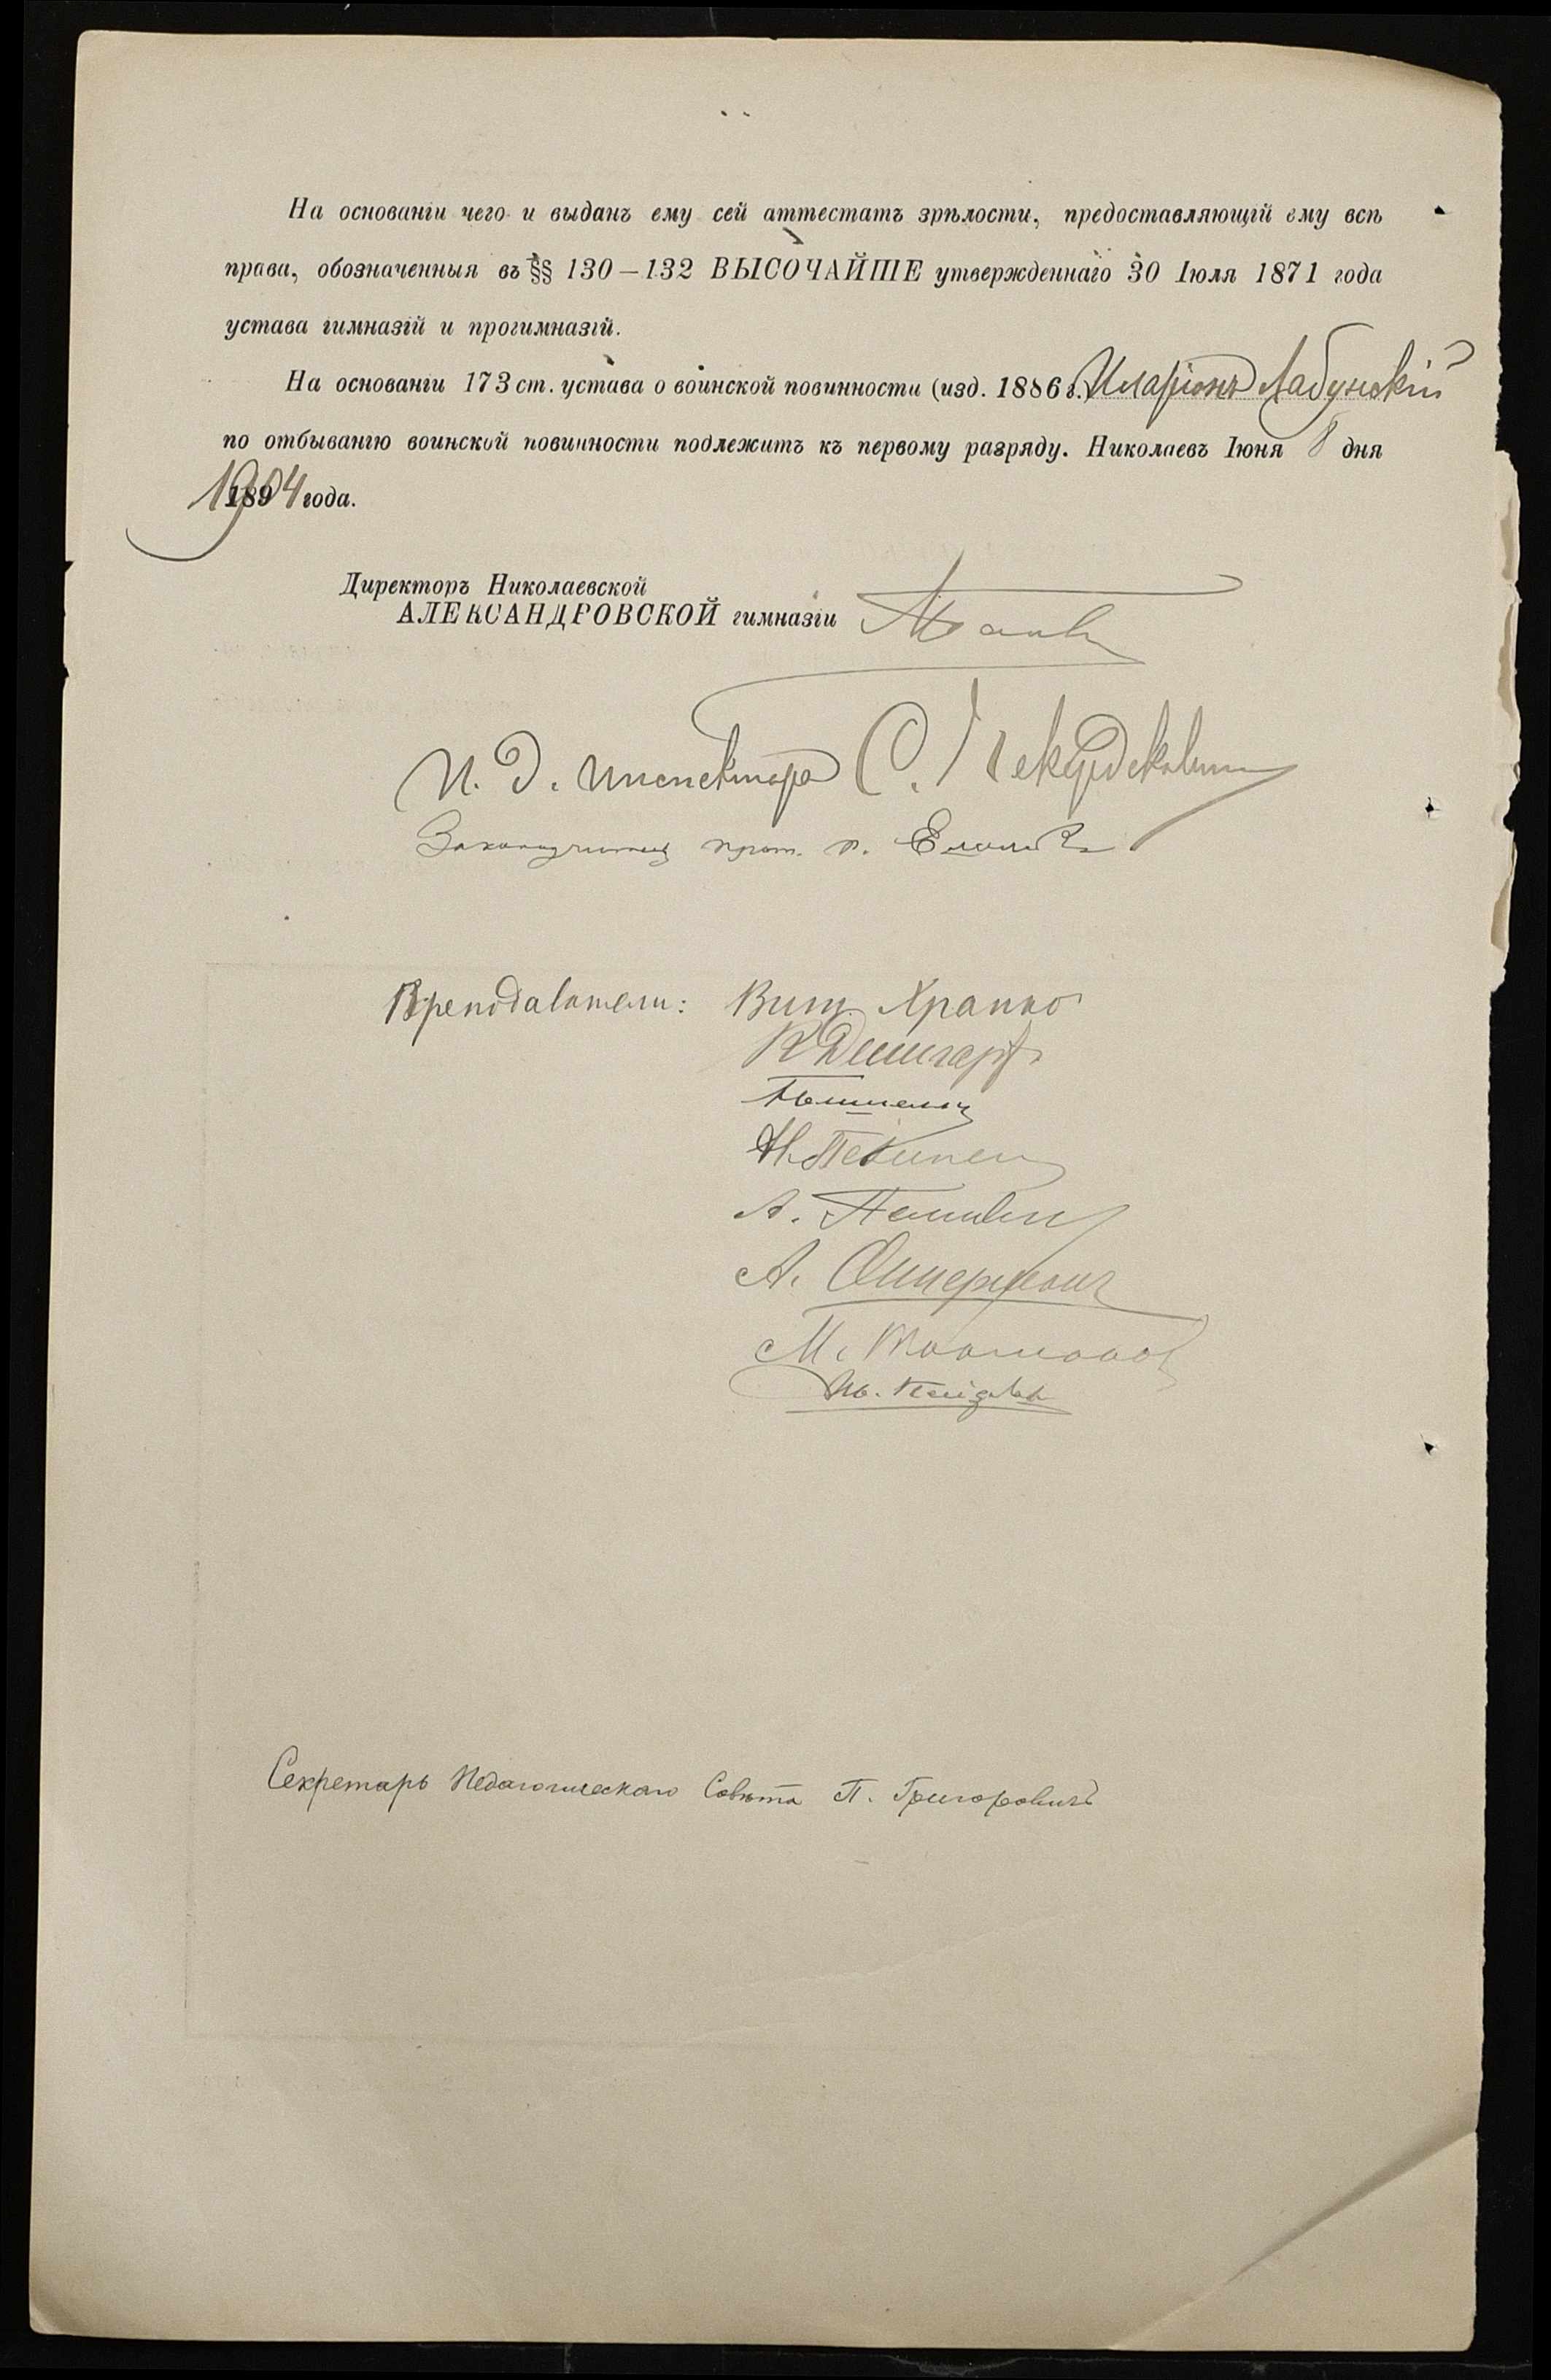 На основаніи чего и выданъ ему сей аттестатъ зрѣлости, предоставляющій ему всѣ
права, обозначенныя въ §§ 130—132 ВЫСОЧАЙШЕ утвержденнаго 30 Іюля 1871 года
устава гимназій и прогимназій.
На основаніи 173 ст. устава о воинской повинности (изд. 1886 г. Иларіонъ Лабунскій
по отбыванію воинской повинности подлежитъ къ первому разряду. Николаевъ Іюня 8 дня
1904 года.
Директоръ Николаевской
АЛЕКСАНДРОВСКОЙ гимназіи
И. д. инспектора С.
Законоучитель прот.
Преподаватели: Вит. Храпко
А.
А.
М.
Ив.
Секретарь Педагогическаго Совѣта П. Григоровичъ